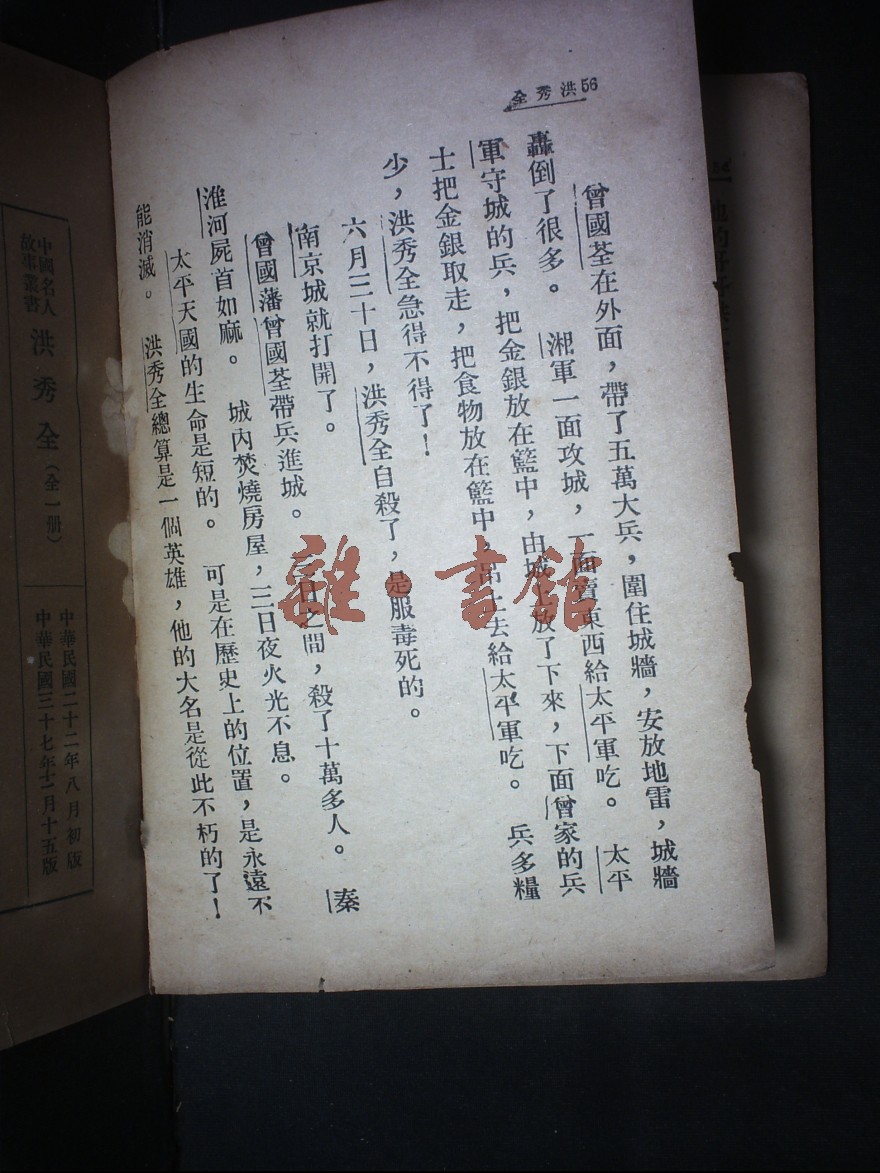 全秀洪56
曾國荃在外面，帶了五萬大兵，圍住城牆，安放地雷，城牆
轟倒了很多。 湘軍一面攻城，一面賣東西給太平軍吃。 太平
軍守城的兵，把金銀放在籃中，由城上放了下來，下面曾家的兵
士把金銀取走，把食物放在籃中，吊上去給太平軍吃。 兵多糧
少，洪秀全急得不得了！
六月三十日，洪秀全自殺了，是服毒死的。
南京城就打開了。
曾國藩曾國荃帶兵進城。 三日之間，殺了十萬多人。 秦
淮河屍首如麻。 城內焚燒房屋，三日夜火光不息。
太平天國的生命是短的。 可是在歷史上的位置，是永遠不
能消滅。 洪秀全總算是一個英雄，他的大名是從此不朽的了！
中國名人
故事叢書
洪秀全（全一册）
中華民國二十二年八月初版
中華民國三十七年十二月十五版
雜·書館